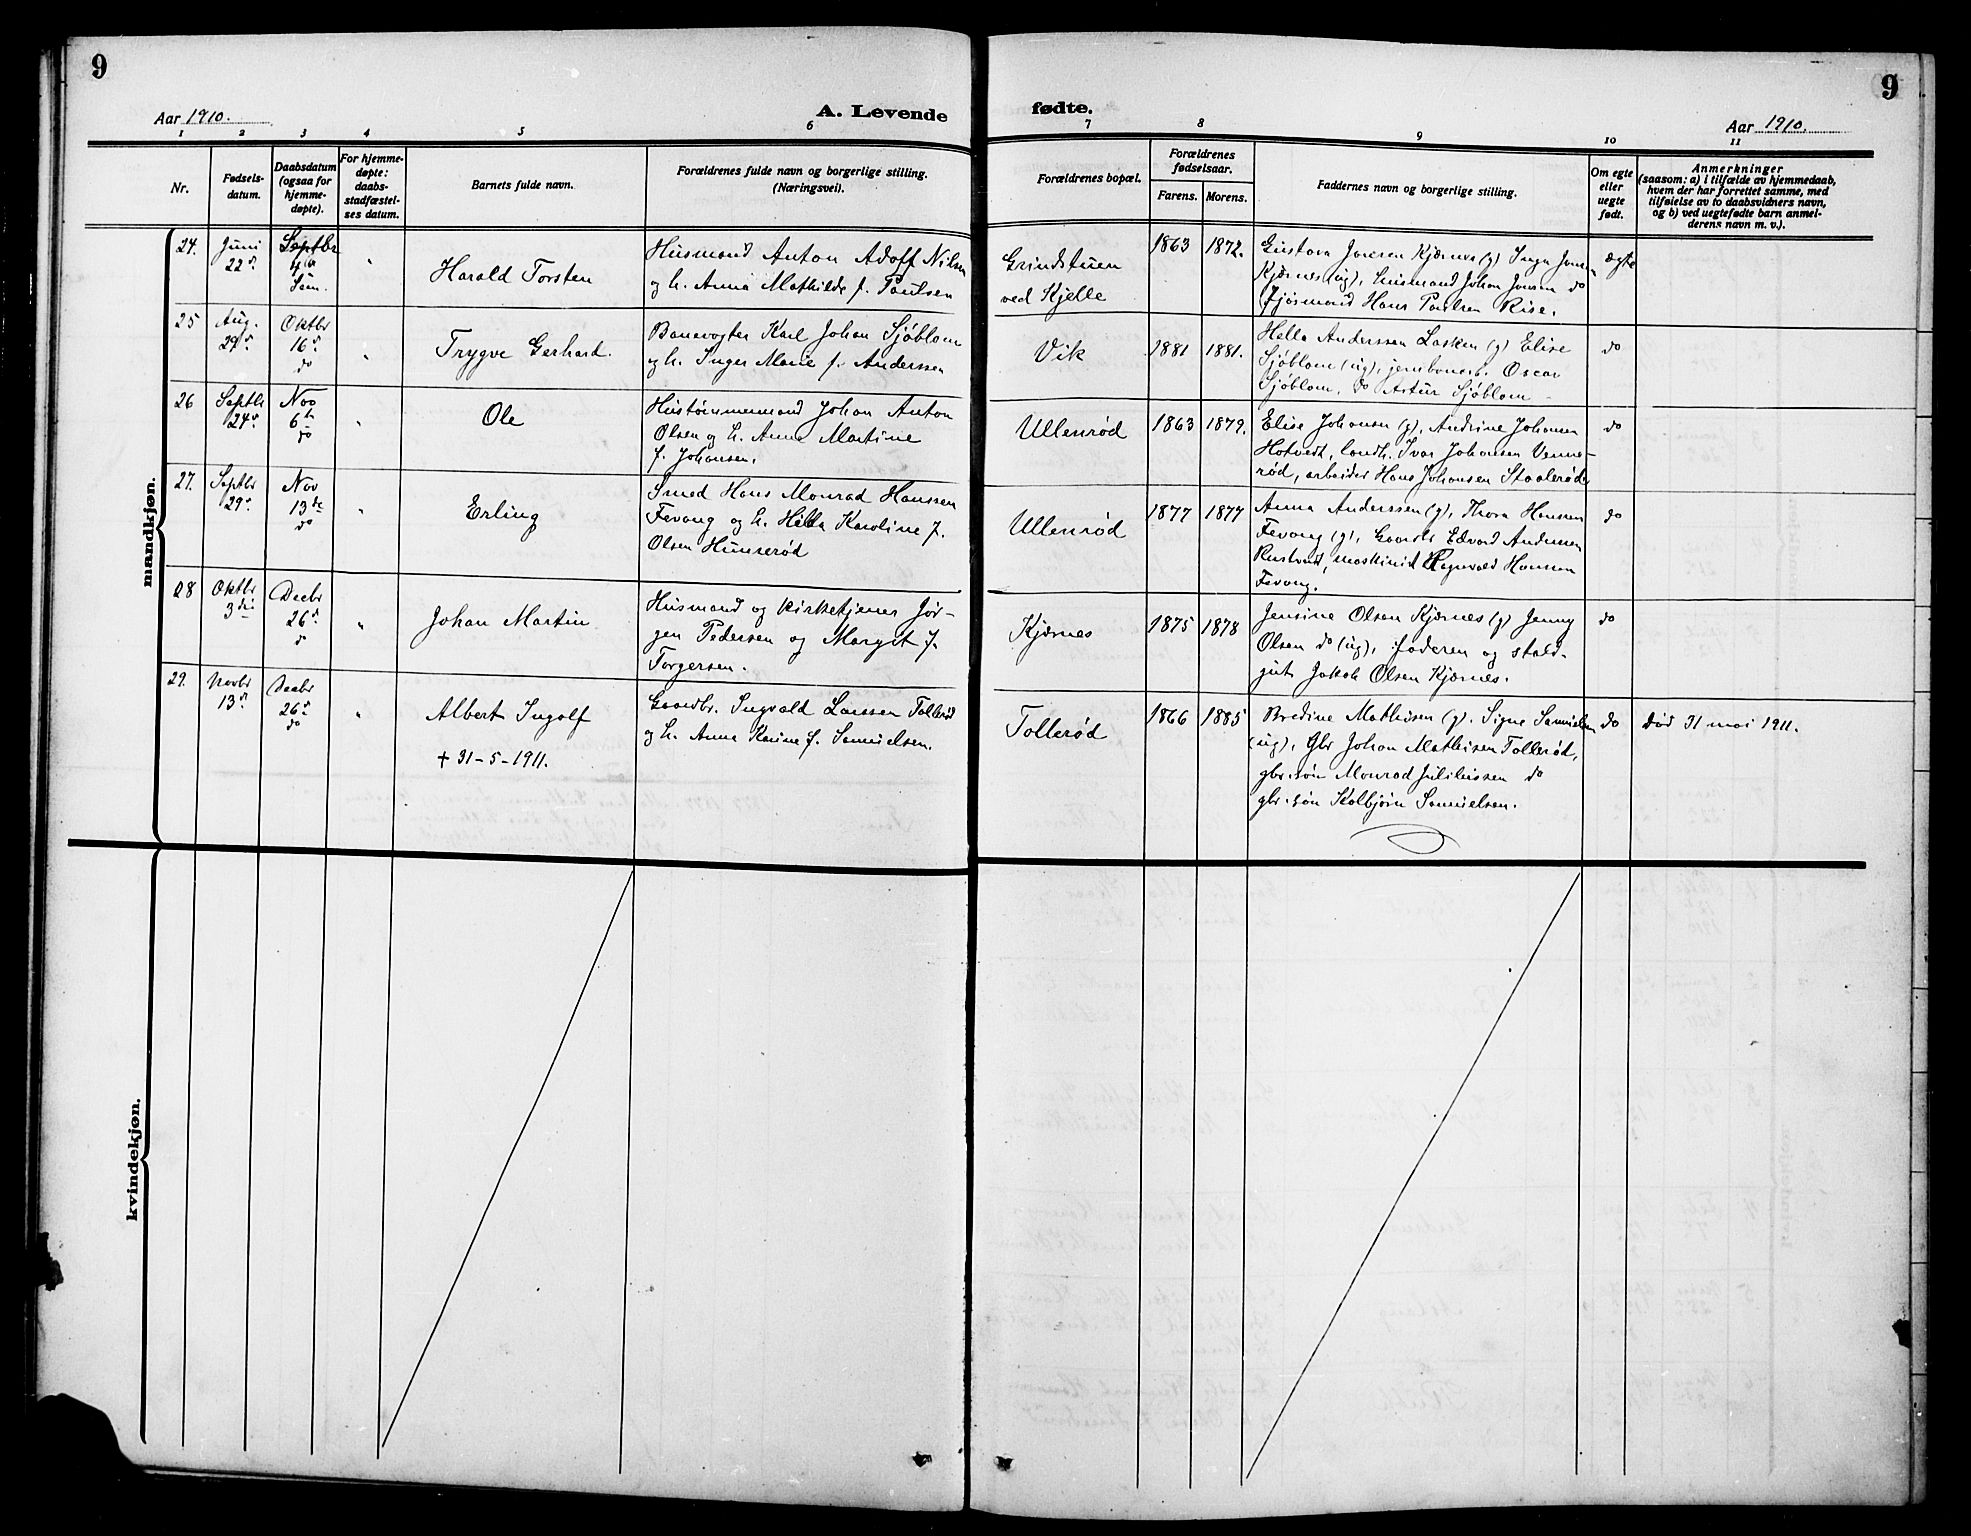 9
9
Aar 1910.
A. Levende
fødte.
Aar 1910.
1 2 3 4 5 6 7 8 9 10 11
Nr.
Fødsels-
datum.
Daabsdatum
(ogsaa for
hjemme-
døpte).
For hjemme-
døpte:
daabs-
stadfæstel-
ses datum.
Barnets fulde navn.
Forældrenes fulde navn og borgerlige stilling.
(Næringsvei).
Forældrenes bopæl.
Forældrenes
fødselsaar.
Farens. Morens.
Faddernes navn og borgerlige stilling.
Om egte
eller
uegte
født.
Anmerkninger
(saasom: a) i tilfælde av hjemmedaab,
hvem der har forrettet samme, med
tilføielse av to daabsvidners navn,
og b) ved uegtefødte barn anmel-
derens navn m. v.).
mandkjøn.
24.
Juni
22d.
Septbr
4de
Sem.
"
Harald Torsten
Husmand Anton Adolf Nilsen
og h. Anna Mathilde f. Paulsen
Grindstuen
ved Kjelle
1863 1872.
Gustava Jonsen Kjærnes (g) Inga Jonsen
Kjærnes (ug), husmand Johan Jonsen do
fjøsmand Hans Paulsen Rise.
ægte
25
Aug.
29d
Oktbr
16d
do
"
Trygve Gerhard.
Banevogter Karl Johan Sjöblom
og h. Inger Marie f. Anderssen
Vik
1881 1881.
Hella Anderssen Lasken (g) Elise
Sjöblom (ug), jernbanearb. Oscar
Sjöblom, do Artur Sjöblom
do
26
Septbr
24d
Nov
6te
do
"
Ole
Hustømmermand Johan Anton
Olsen og h. Anna Martine
f. Johansen.
Ullenrød
1863 1879.
Elise Johansen (g), Andrine Johansen
Hotvedt, landh. Ivar Johansen Venne-
rød, arbeider Hans Johansen Staalerød
do
27.
Septbr
29d
Nov
13de
do
"
Erling
Smed Hans Monrad Hanssen
Fevang og h. Hilda Karoline f.
Olsen Hunserød
Ullenrød
1877 1877
Anna Anderssen (g), Thora Hanssen
Fevang (g), Gaardbr Edvard Anderssen
Rustvedt, maskinist Ragnvald Hanssen
Fevang.
do
28
Oktbr
3die
Decbr
26d
do
"
Johan Martin
Husmand og kirketjener Jør-
gen Pedersen og Margit f.
Torgersen.
Kjærnes
1875 1878
Jensine Olsen Kjærnes (g) Jenny
Olsen do (ug), faderen og stald-
gut Jakob Olsen Kjærnes.
do
29.
Novbr
13d
Decbr
26d
do
"
Albert Ingolf
+ 31-5-1911.
Gaardbr. Ingvald Larssen Tollerød
og h. Anna Karine f. Samuelsen.
Tollerød
1866 1885
Bredine Mathisen (g). Signe Samuelsen
(ug), Gbr Johan Mathisen Tollerød,
gbr. søn Monrad Juliussen do
gbr. søn Kolbjørn Samuelsen.
do
Død 31 mai 1911.
kvindekjøn.